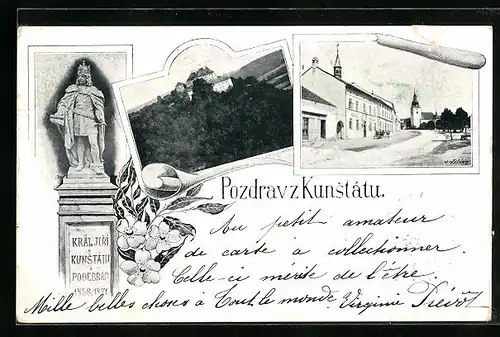 KRÁL JIŘÍ
Z
KUNŠTÁTU
A
PODĚBRAD
1458-1471
Pozdrav z Kunštátu.
Au petit amateur
de carte à collectionner.
Celle-ci mérite de l'être.
Mille belles choses à tout le monde. Virginie Piévôt